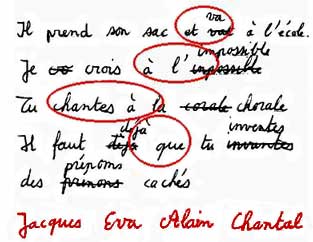 Il prend son sac et val va à l'école.
Je co crois à l' impossible impossible
Tu chantes à la corale chorale
Il faut deja déjà que tu invantes inventes
des prinoms prénoms cachés
Jacques Eva Alain Chantal